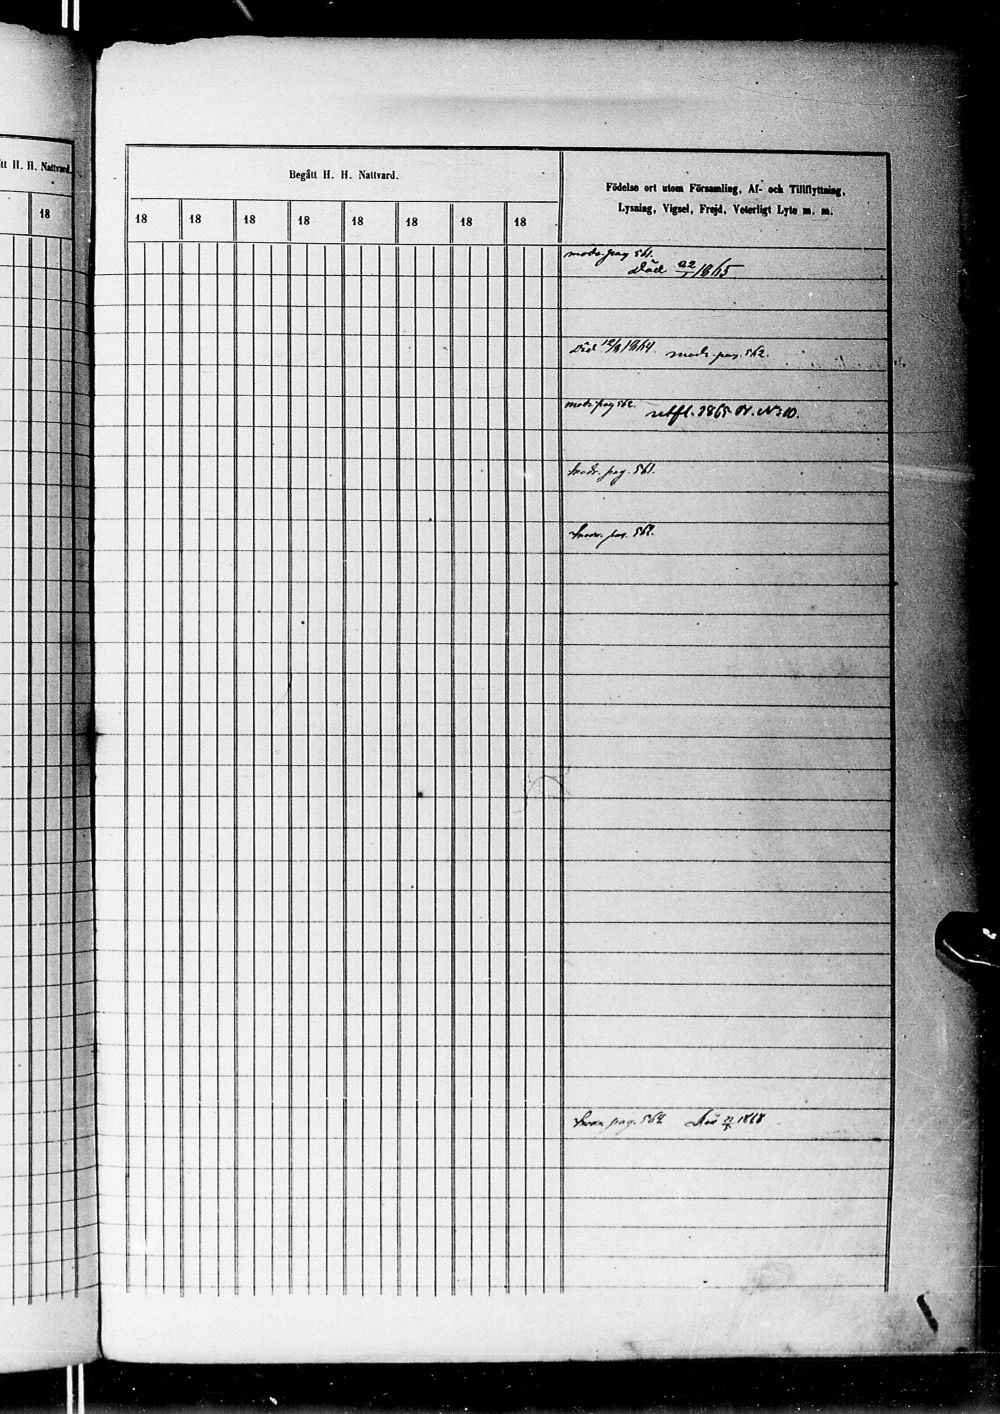 tt H. H. Nattvard.
18
Begått H. H. Nattvard.
18 18 18 18 18 18 18 18
Födelse ort utom Församling, Af- och Tillflyttning,
Lysning, Vigsel, Frejd, Veterligt Lyte m. m.
modr. pag 561.
Död 22/ 1865
Död 12/8 1864. modr. pag. 562.
modr. pag 562.
utfl. 1865 N:o 10.
modr. pag. 561.
pag. 562.
pag. 562 Död